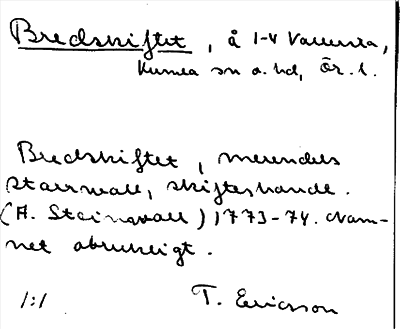 Bredskiftet, å 1-4 Vallersta,
Kumla sn o. hd, Ör. l.
Bredskiftet, merendels
starrvall, skifteshandl.
(A. Steingvall) 1773-74. Nam-
net obrukligt.
1:1 T. Ericsson